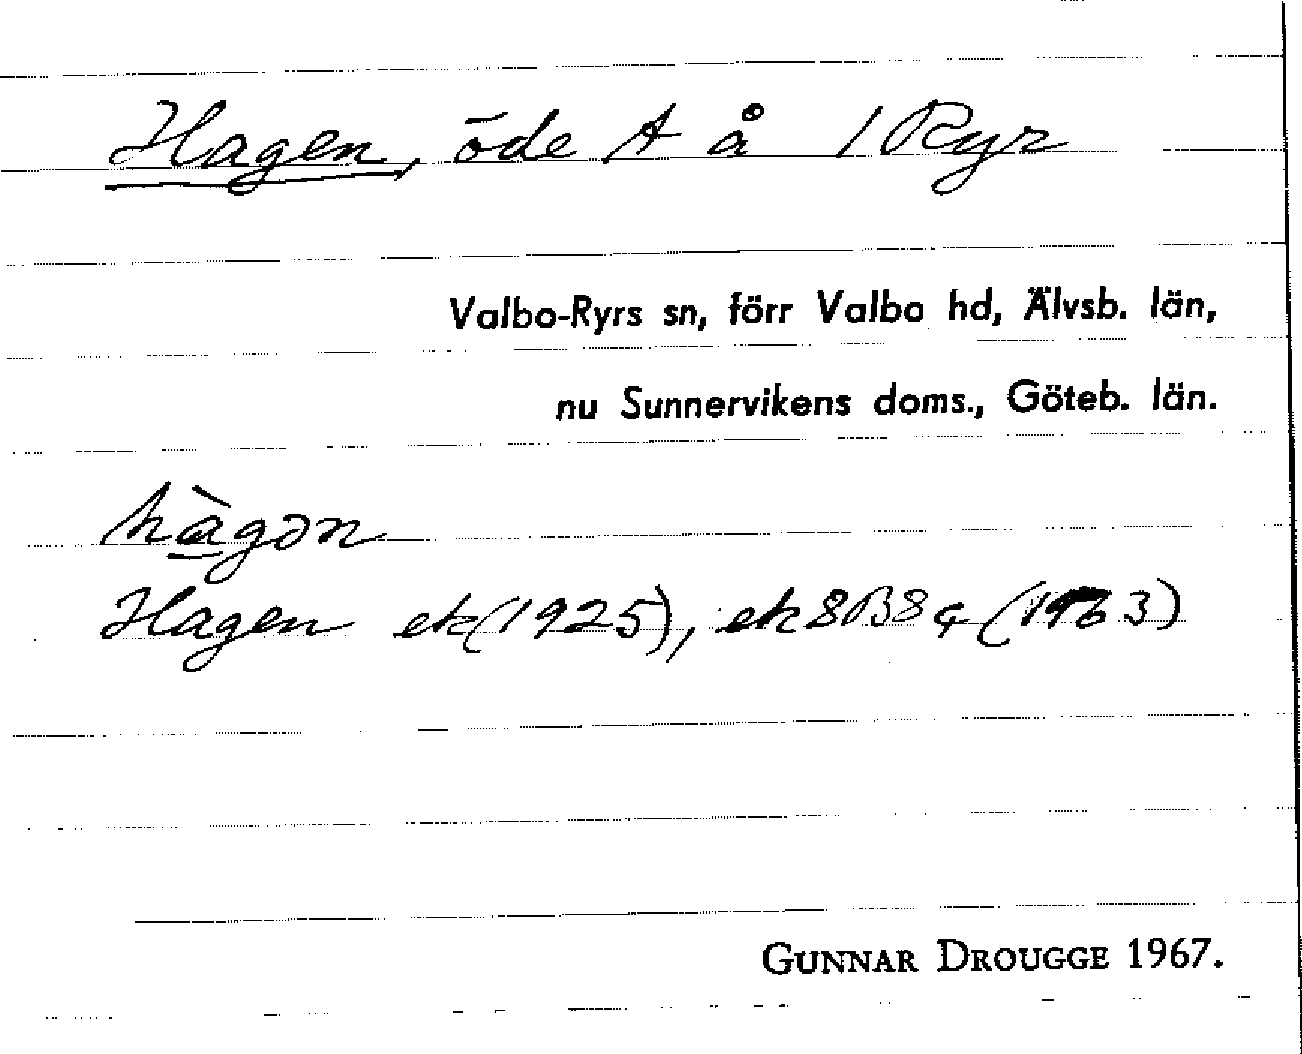 Hagen, öde A å 1 Ryr
Valbo-Ryrs sn, förr Valbo hd, Älvsb. län,
nu Sunnervikens doms., Göteb. län.
hàgən
Hagen ek(1925), ek 8B8c (1963)
GUNNAR DROUGGE 1967.